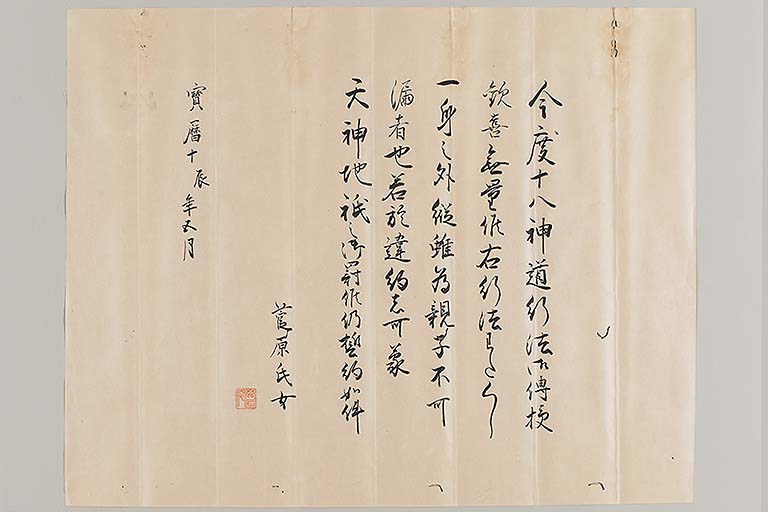 今度十八神道行法御傳授
欽喜無量候右行法
一身之外縦雖為親子不可
漏者也若於違約者可蒙
天神地祇之御罸候仍誓約如件
菅原氏女
寳曆十辰年五月